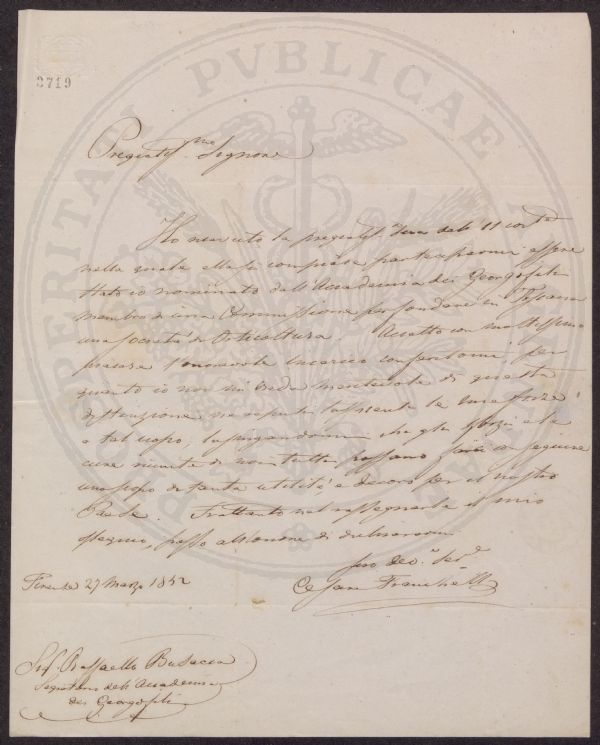 2719
PROSPERITATI PVBLICAE
Pregiatis.mo Signore
Ho ricevuto la pregiatis. Sua del 11 cor.te
nella quale ella si compiace parteciparmi essere
stato io nominato dall'Accademia dei Georgofili
membro di una Commissione per fondare in Toscana
una società di Orticultura. Accetto con moltissimo
piacere l'onorevole incarico conferitomi, per
quanto io non mi creda meritevole di questa
distinzione ne reputi bastante le mie forze
a tal uopo, lusingandomi che gli sforzi e le
cure riunite di noi tutti possano far conseguire
uno scopo di tanta utilità, e decoro per il nostro
Paese. Frattanto nel rassegnarle il mio
ossequio, passo all'onore di dichiararmi
Suo dev.o Ser.e
Cesare Franchetti
Firenze 27 Marzo 1852
Sig. Raffaello Busacca
Segretario dell'Accademia
dei Georgofili